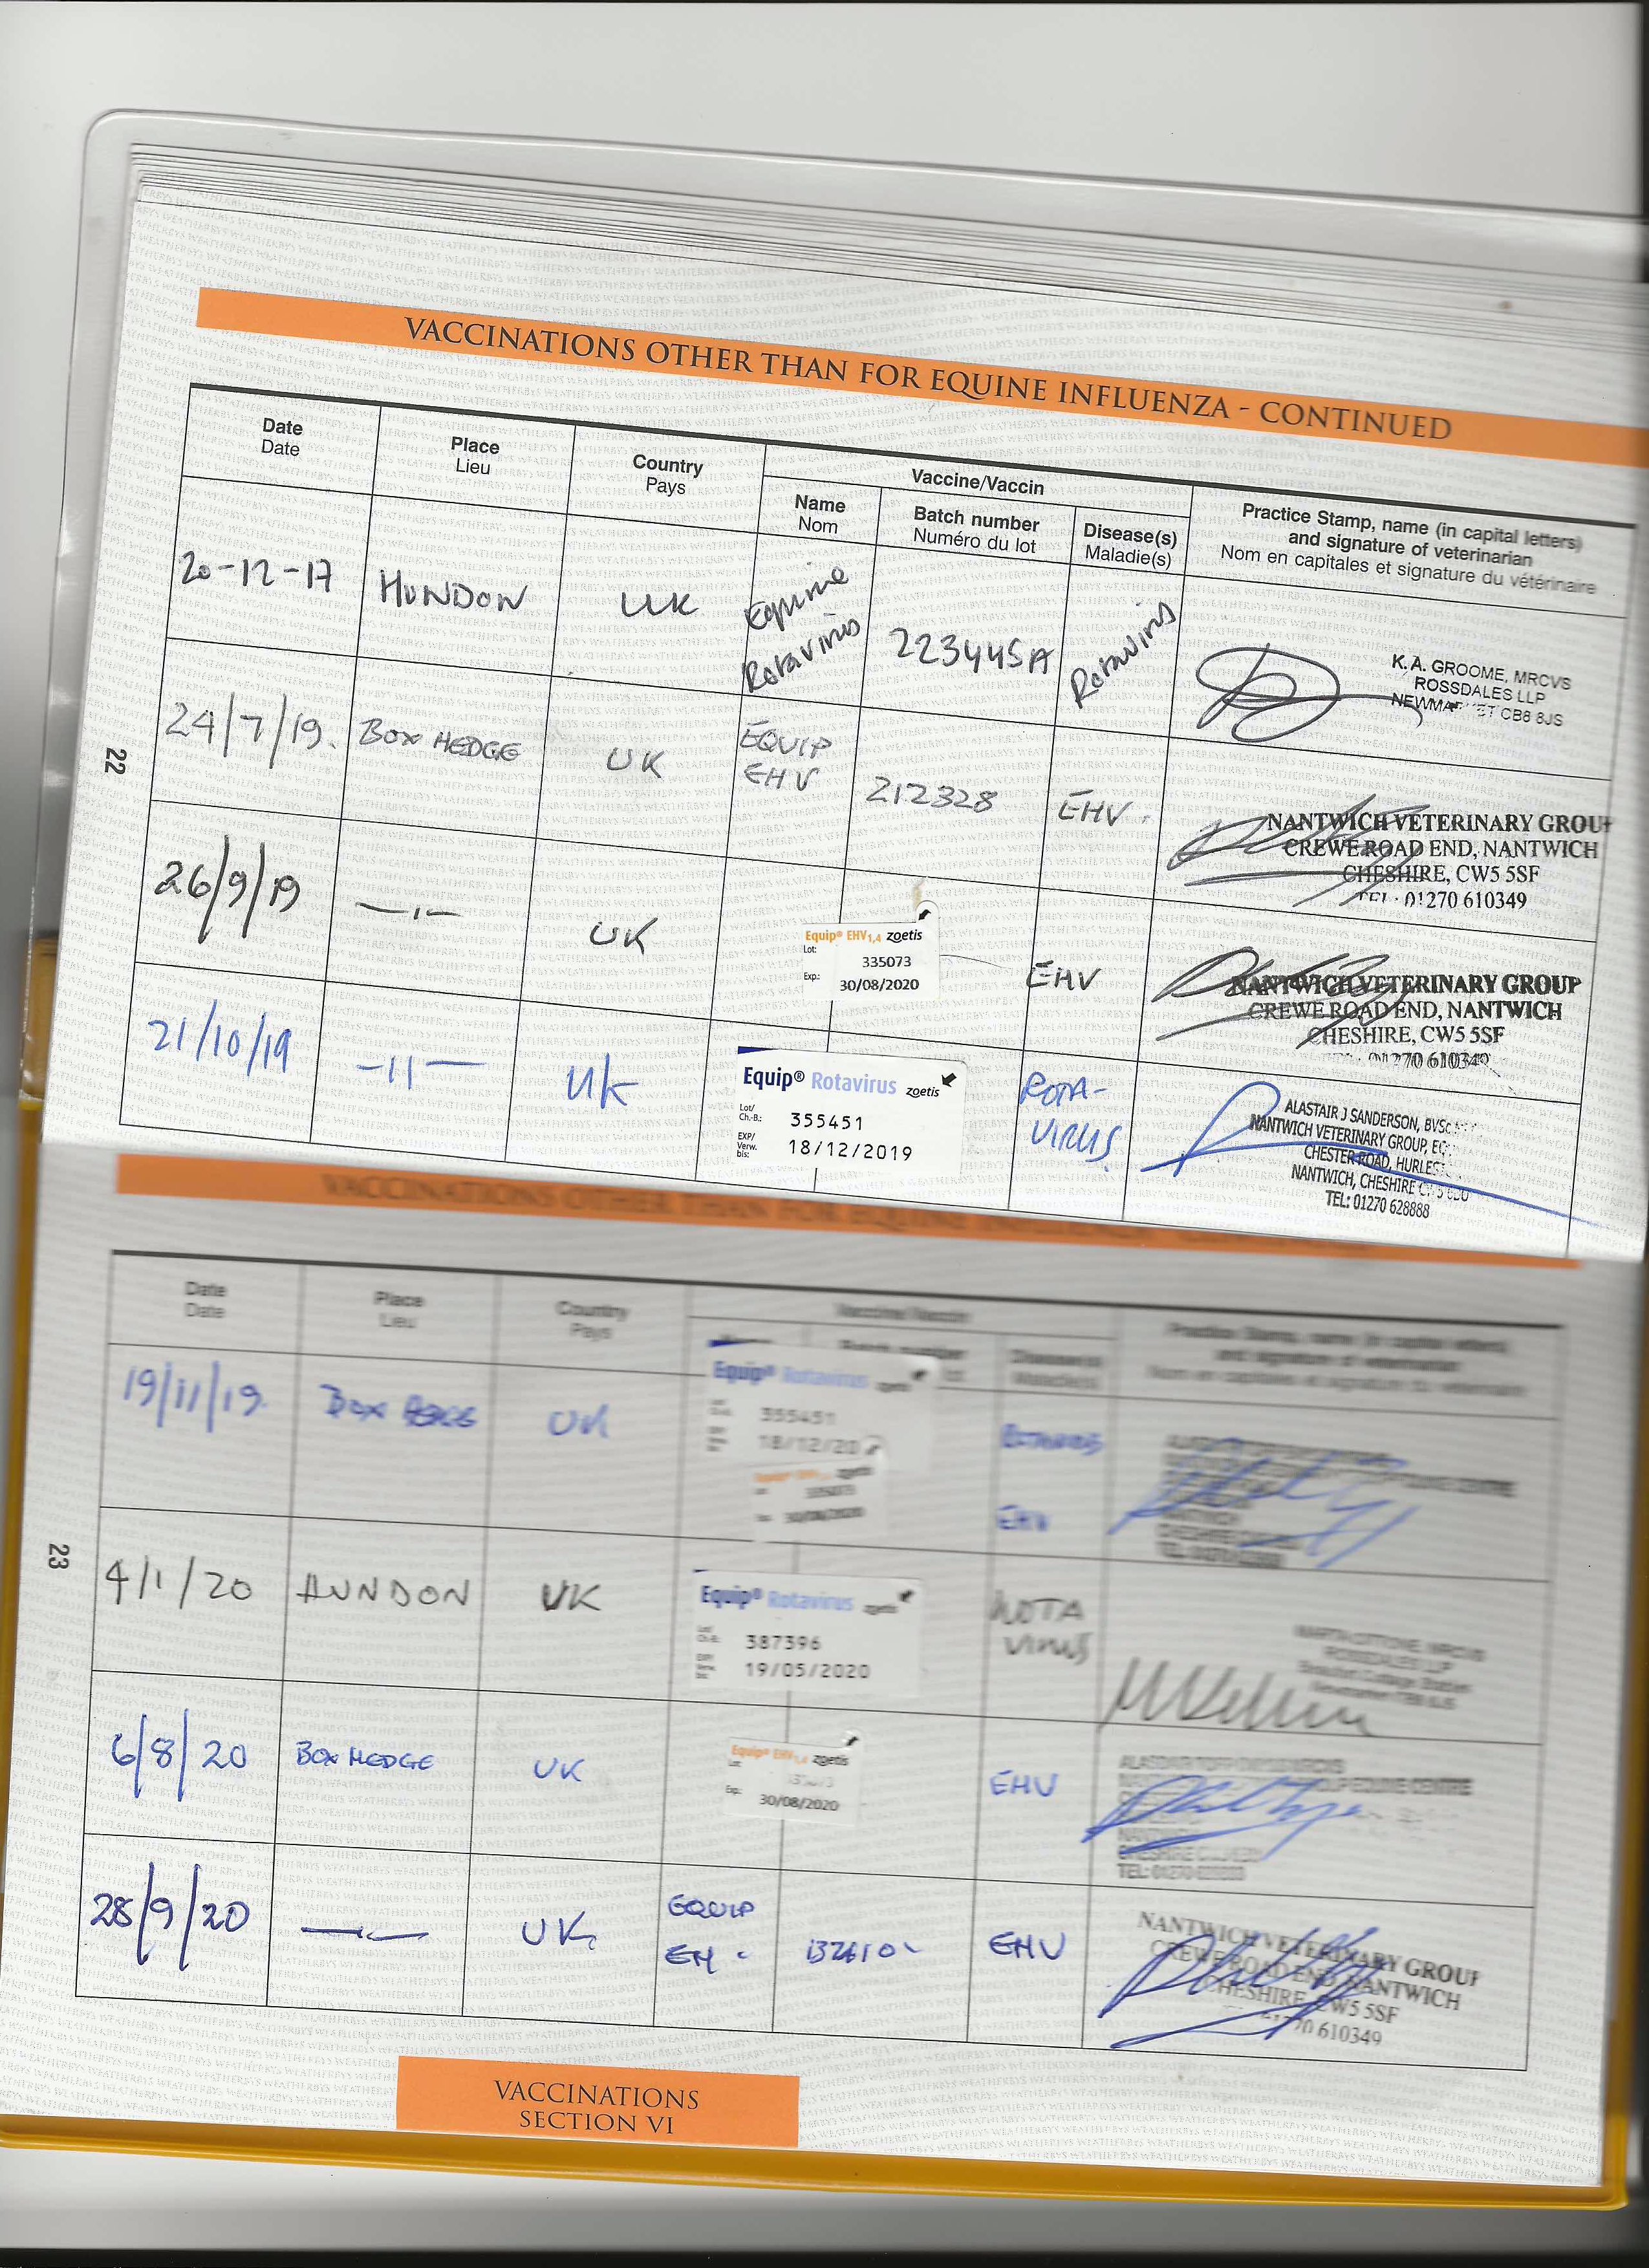 VACCINATIONS OTHER THAN FOR EQUINE INFLUENZA - CONTINUED
Date
Date
Place
Lieu
Country
Pays
Vaccine/Vaccin
Name
Nom
Batch number
Numéro du lot
Disease(s)
Maladie(s)
Practice Stamp, name (in capital letters)
and signature of veterinarian
Nom en capitales et signature du vétérinaire
20-12-17
HUNDON
UK
Equine
Rotavirus
223445A
Rotavirus
K. A. GROOME, MRCVS
ROSSDALES LLP
CB8 8JS
24/7/19.
BOX HEDGE
UK
EQUIP
EHV
212328
EHV.
NANTWICH VETERINARY GROUP
CREWE ROAD END, NANTWICH
CHESHIRE, CW5 5SF
TEL: 01270 610349
26/9/19
—ı—
UK
Equip® EHV1,4 zoetis
Lot:
335073
Exp.:
30/08/2020
EHV
NANTWICH VETERINARY GROUP
CREWE ROAD END, NANTWICH
CHESHIRE, CW5 5SF
01270 610349
21/10/19
-11-
UK
Equip® Rotavirus zoetis
Lot/
Ch.-B.:
355451
EXP/
Verw.
bis:
18/12/2019
ROTA-
VIRUS.
ALASTAIR J SANDERSON, BVSc
NANTWICH VETERINARY GROUP,
CHESTER ROAD,
NANTWICH, CHESHIRE
TEL: 01270 628888
22
VACCINATIONS OTHER THAN FOR EQUINE
Date
Date
Place
Lieu
Country
Pays
Vaccine/Vaccin
Practice Stamp, name (in capital letters)
and signature of veterinarian
Nom en capitales et signature du vétérinaire
19/11/19.
BOX HEDGE
UK
Equip® Rotavirus zoetis
355451
18/12/20
zoetis
335073
30/08/2020
EHV
4/1/20
HUNDON
UK
Equip® Rotavirus zoetis
387396
19/05/2020
ROTA
VIRUS
ROSSDALES LLP
6/8/20
BOX HEDGE
UK
Equip® EHV1,4 zoetis
Exp.:
30/08/2020
EHV
28/9/20
—ı—
UK
EQUIP
EHV
EHV
NANTWICH VETERINARY GROUP
CREWE ROAD END, NANTWICH
CHESHIRE, CW5 5SF
01270 610349
23
VACCINATIONS
SECTION VI